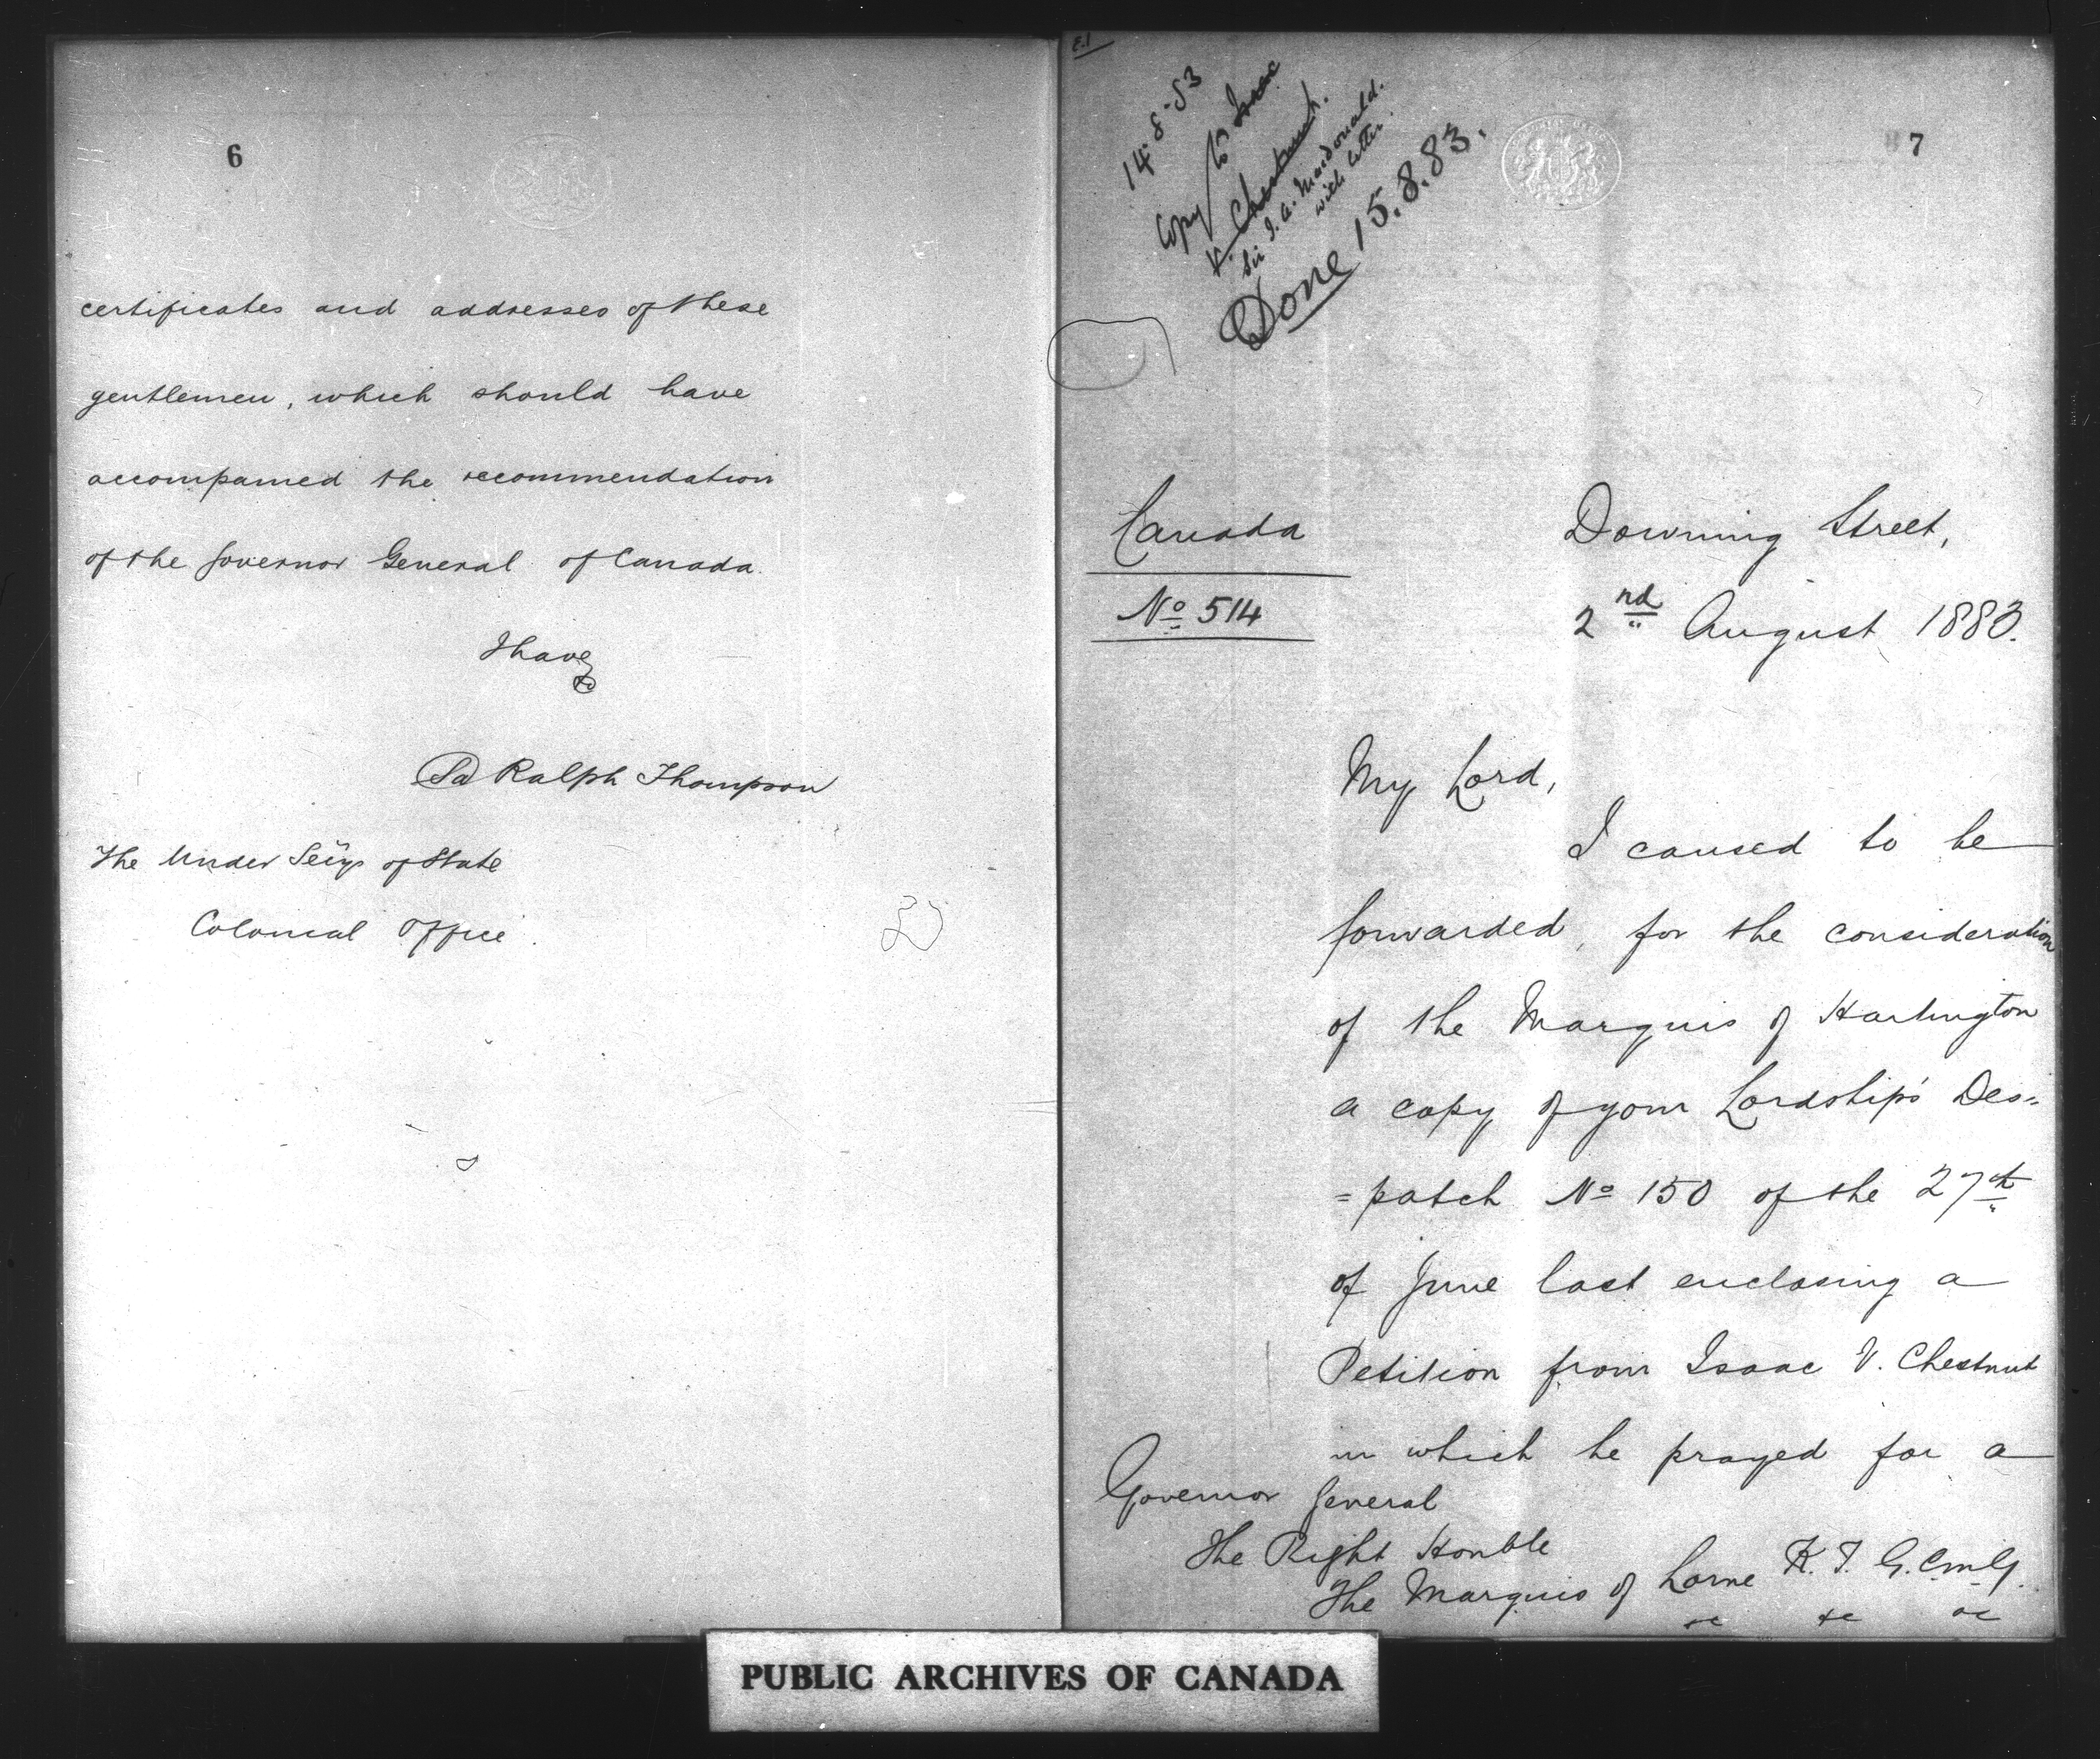 6
certificates and addresses of these
gentlemen, which should have
accompanied the recommendation
of the Governor General of Canada.
I have
&c
Sd Ralph Thompson
The Under Secy of State
Colonial Office.
E.1
14-8-83
Copy to Isaac
V. Chestnut.
Sir J. A. Macdonald.
with letter.
Done 15.8.83.
7
Canada
No 514
Downing Street,
2nd August 1883.
My Lord,
I caused to be
forwarded, for the consideration
of the Marquis of Hartington
a copy of your Lordship's Des=
=patch No 150 of the 27th
of June last enclosing a
Petition from Isaac V. Chestnut
in which he prayed for a
Governor General
The Right Honble
The Marquis of Lorne K.T. G.C.M.G.
&c &c &c
PUBLIC ARCHIVES OF CANADA